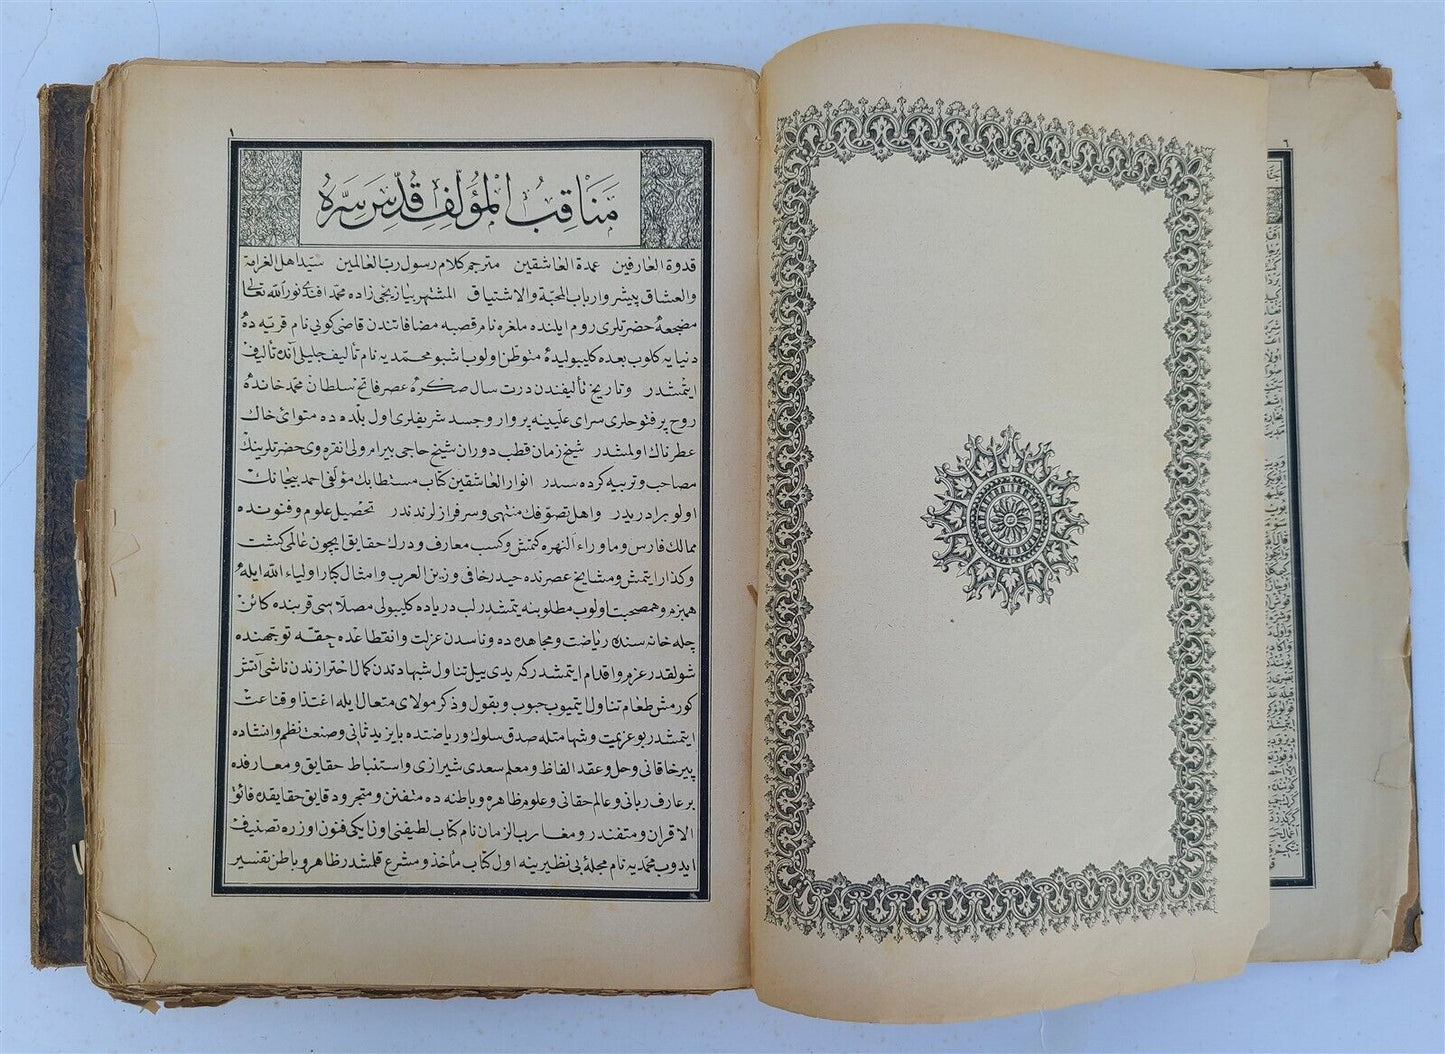 ١
مَنَاقِبُ الْمُؤَلِّفِ قُدِّسَ سِرَّهُ
قدوة العارفين عمدة العاشقين مترجم كلام رسول رب العالمين سيد اهل الغرامة
والعشاق پيشرو ارباب المحبة والاشتياق المشتهر بيازيجى زاده محمد افندى نور الله تعالى
مضجعه حضرتلرى روم ايلنده ملغره نام قصبه مضافاتندن قاضى كويى نام قريه ده
دنيايه كلوب بعده كليبوليده متوطن اولوب اشبو محمديه نام تأليف جليلى آنك تأليف
ايتمشدر و تاريخ تأليفندن درت سال صكره عصر فاتح سلطان محمد خانده
روح پرفتوحلرى سراى عليينه پروار و جسد شريفلرى اول بلده ده متوائ خاك
عطرناك اولمشدر شيخ زمان قطب دوران شيخ حاجى بيرام ولى انقروى حضرتلرينك
مصاحب و تربيه كرده سيدر انوار العاشقين كتاب مستطابك مؤلفى احمد بيجانك
اولو برادريدر و اهل تصوفك منتهى و سرفرازلرندندر تحصيل علوم و فنونده
ممالك فارس و ماوراء النهره كتمش و كسب معارف و درك حقايق ايچون عالمى كشت
و كذار ايتمش و مشايخ عصرنده حيدر خافى و زين العرب و امثال كبار اولياء الله ايله
همبزم و همصحبت اولوب مطلوبنه يتمشدر لب درياده كليبولى مصلاسى قربنده كائن
چله خانه سنده رياضت و مجاهده ده و ناسدن عزلت و انقطاعده حقه توجهنده
شولقدر عزم و اقدام ايتمشدر كه يدى ييل تناول شبهاتدن كمال احترازندن ناشى آتش
كورمش طعام تناول ايتميوب حبوب و بقول و ذكر مولاى متعال ايله اغتذا و قناعت
ايتمشدر بو عزيمت و شهامتله صدق سلوك و رياضتده بايزيد ثانى و صنعت نظم و انشاده
پير خاقانى و حل و عقد الفاظ و معلم سعدى شيرازى و استنباط حقايق و معارفده
بر عارف ربانى و عالم حقانى و علوم ظاهره و باطنه ده متفنن و متجر و دقايق حقايقده فائق
الاقران و متفنددر و مغارب الزمان نام كتاب لطيفنى اون ايكى فنون اوزره تصنيف
ايدوب محمديه نام مجله بى نظيرينه اول كتاب مأخذ و مشرع قلمشدر ظاهر و باطن تفسير
٦